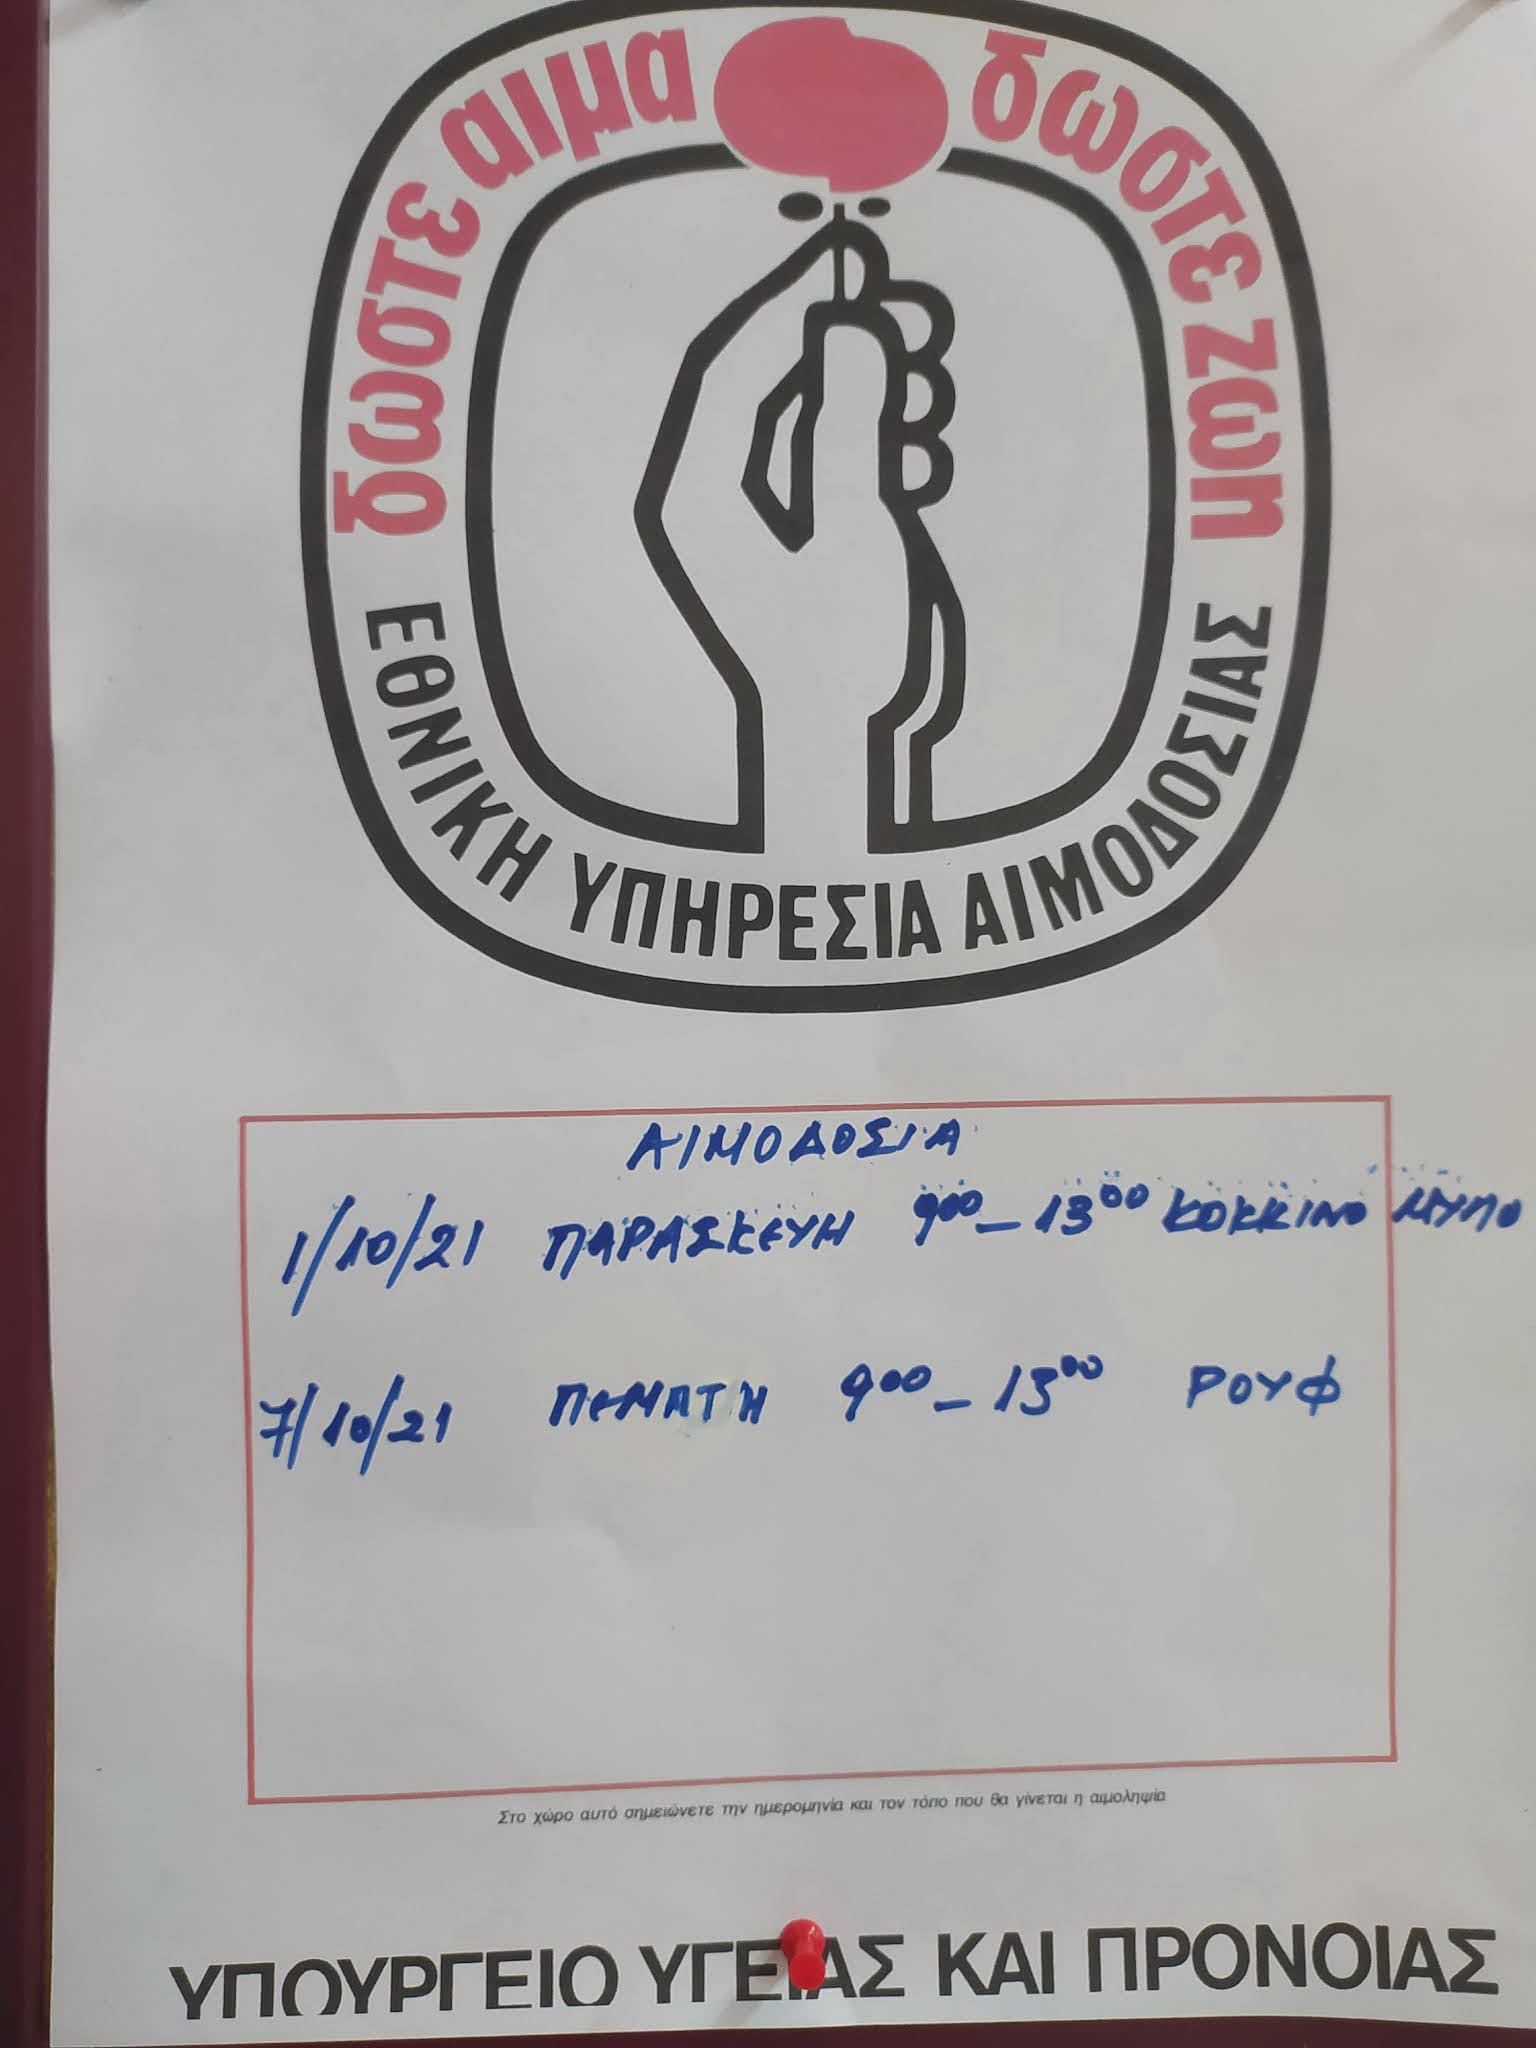 δωστε αιμα δωστε ζωη
ΕΘΝΙΚΗ ΥΠΗΡΕΣΙΑ ΑΙΜΟΔΟΣΙΑΣ
ΑΙΜΟΔΟΣΙΑ
1/10/21 ΠΑΡΑΣΚΕΥΗ 9⁰⁰ - 13⁰⁰ ΚΟΚΚΙΝΟ ΜΥΛΟ
7/10/21 ΠΕΜΠΤΗ 9⁰⁰ - 13⁰⁰ ΡΟΥΦ
Στο χώρο αυτό σημειώνετε την ημερομηνία και τον τόπο που θα γίνεται η αιμοληψία
ΥΠΟΥΡΓΕΙΟ ΥΓΕΙΑΣ ΚΑΙ ΠΡΟΝΟΙΑΣ